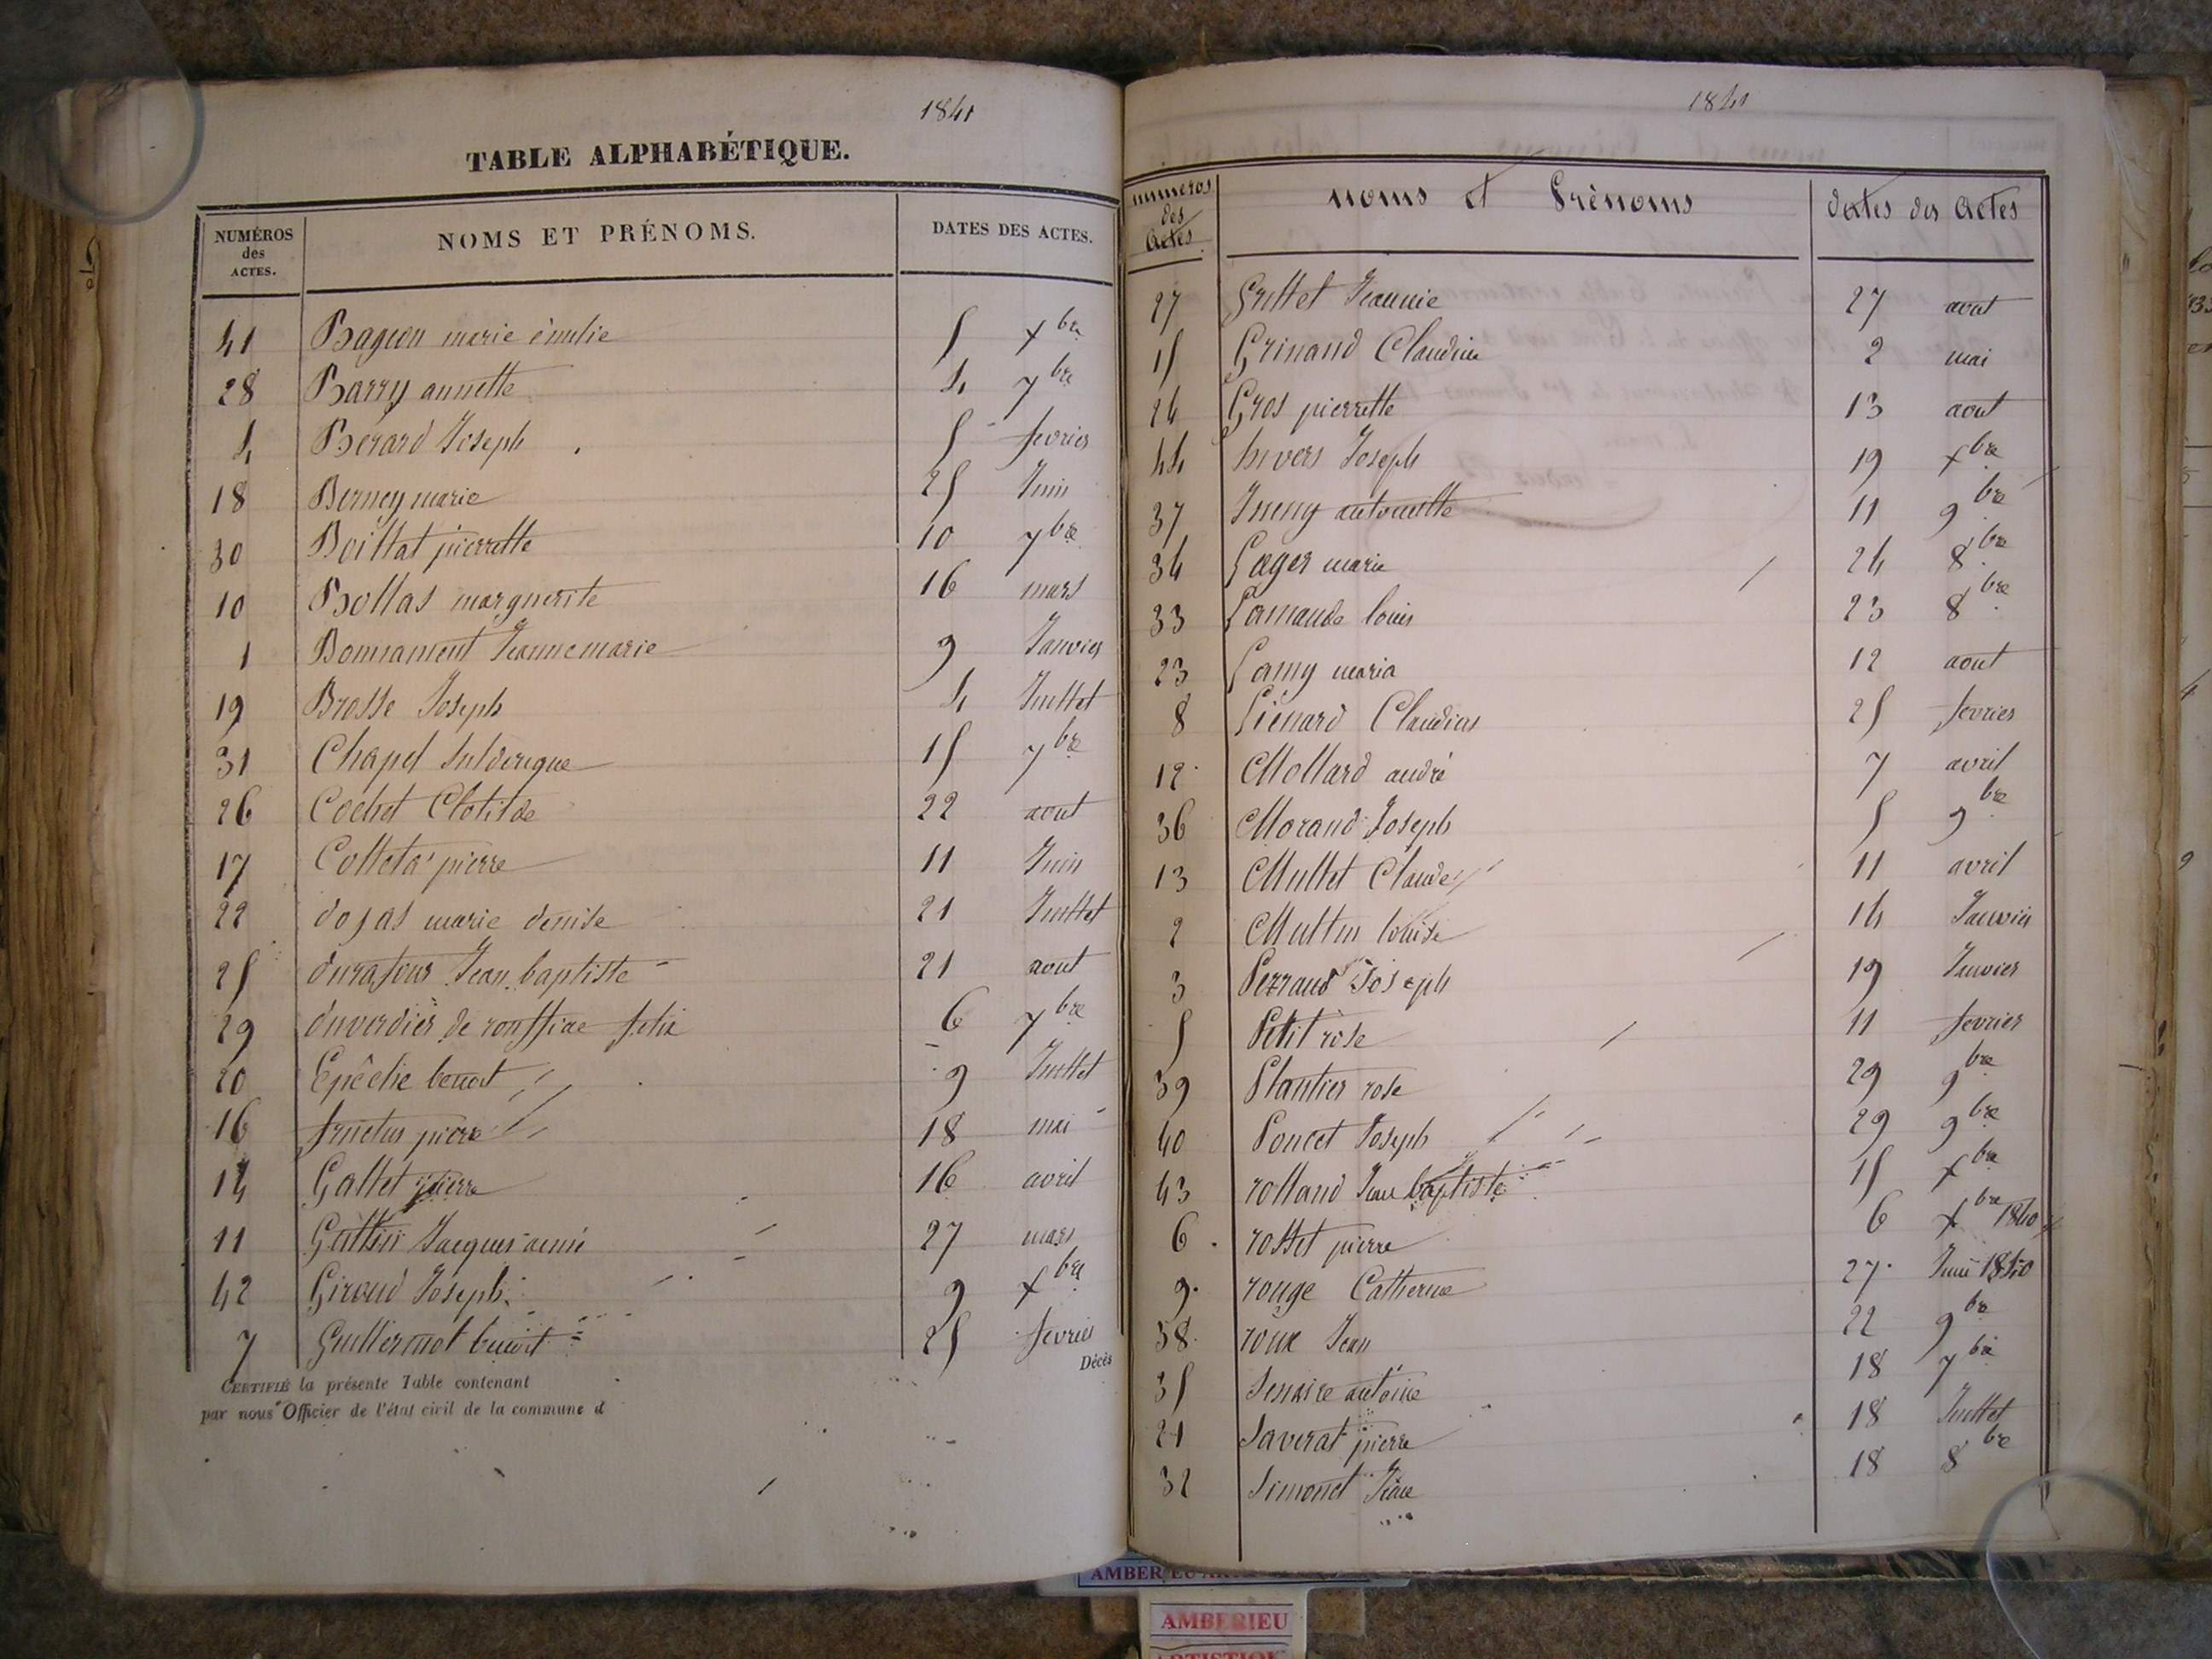 1841
TABLE ALPHABÉTIQUE.
NUMÉROS des ACTES.
NOMS ET PRÉNOMS.
DATES DES ACTES.
41 marie émelie 5 xbre
28 Barry annette 4 7bre
4 Bérard Joseph 5 fevrier
18 Berney marie 25 Juin
30 Boillat pierrette 10 7bre
10 Bollas marguerite 16 mars
1 Jeanne marie 9 Janvier
19 Brosse Joseph 4 Juillet
31 Chapel 15 7bre
26 Cochet Clotilde 22 aout
17 Colleta pierre 11 Juin
22 dojas marie denise 21 Juillet
25 durafour Jean baptiste 21 aout
29 duverdier de felix 6 7bre
20 benoit 9 Juillet
16 fructus pierre 18 mai
14 Gallet pierre 16 avril
11 Jacques 27 mars
42 Giroud Joseph 9 xbre
7 Guillermot benoit 25 fevrier
Décès
CERTIFIÉ la présente Table contenant
par nous Officier de l'état civil de la commune d
1841
numeros des Actes
noms et Prénoms
dates des Actes
27 27 aout
15 Grinand Claudine 2 mai
24 Gros pierrette 13 aout
44 hivers Joseph 19 xbre
37 antoinette 11 9bre
34 Lager marie 24 8bre
33 Lamande louis 23 8bre
23 Lamy maria 12 aout
8 Liénard 25 fevrier
12 Mollard andré 7 avril
36 Morand Joseph 5 9bre
13 Mullet Claude 11 avril
2 louise 14 Janvier
3 Perraud Joseph 19 Janvier
5 Petit rose 11 fevrier
39 Plantier rose 29 9bre
40 Poncet Joseph 29 9bre
43 rolland Jean baptiste 15 xbre
6 rosset pierre 6 xbre 1840
9 rouge Catherine 27 1840
38 roux Jean 22 9bre
35 antoine 18 7bre
21 Saverat pierre 18 Juillet
32 Simonet 18 8bre
AMBERIEU
AMBERIEU